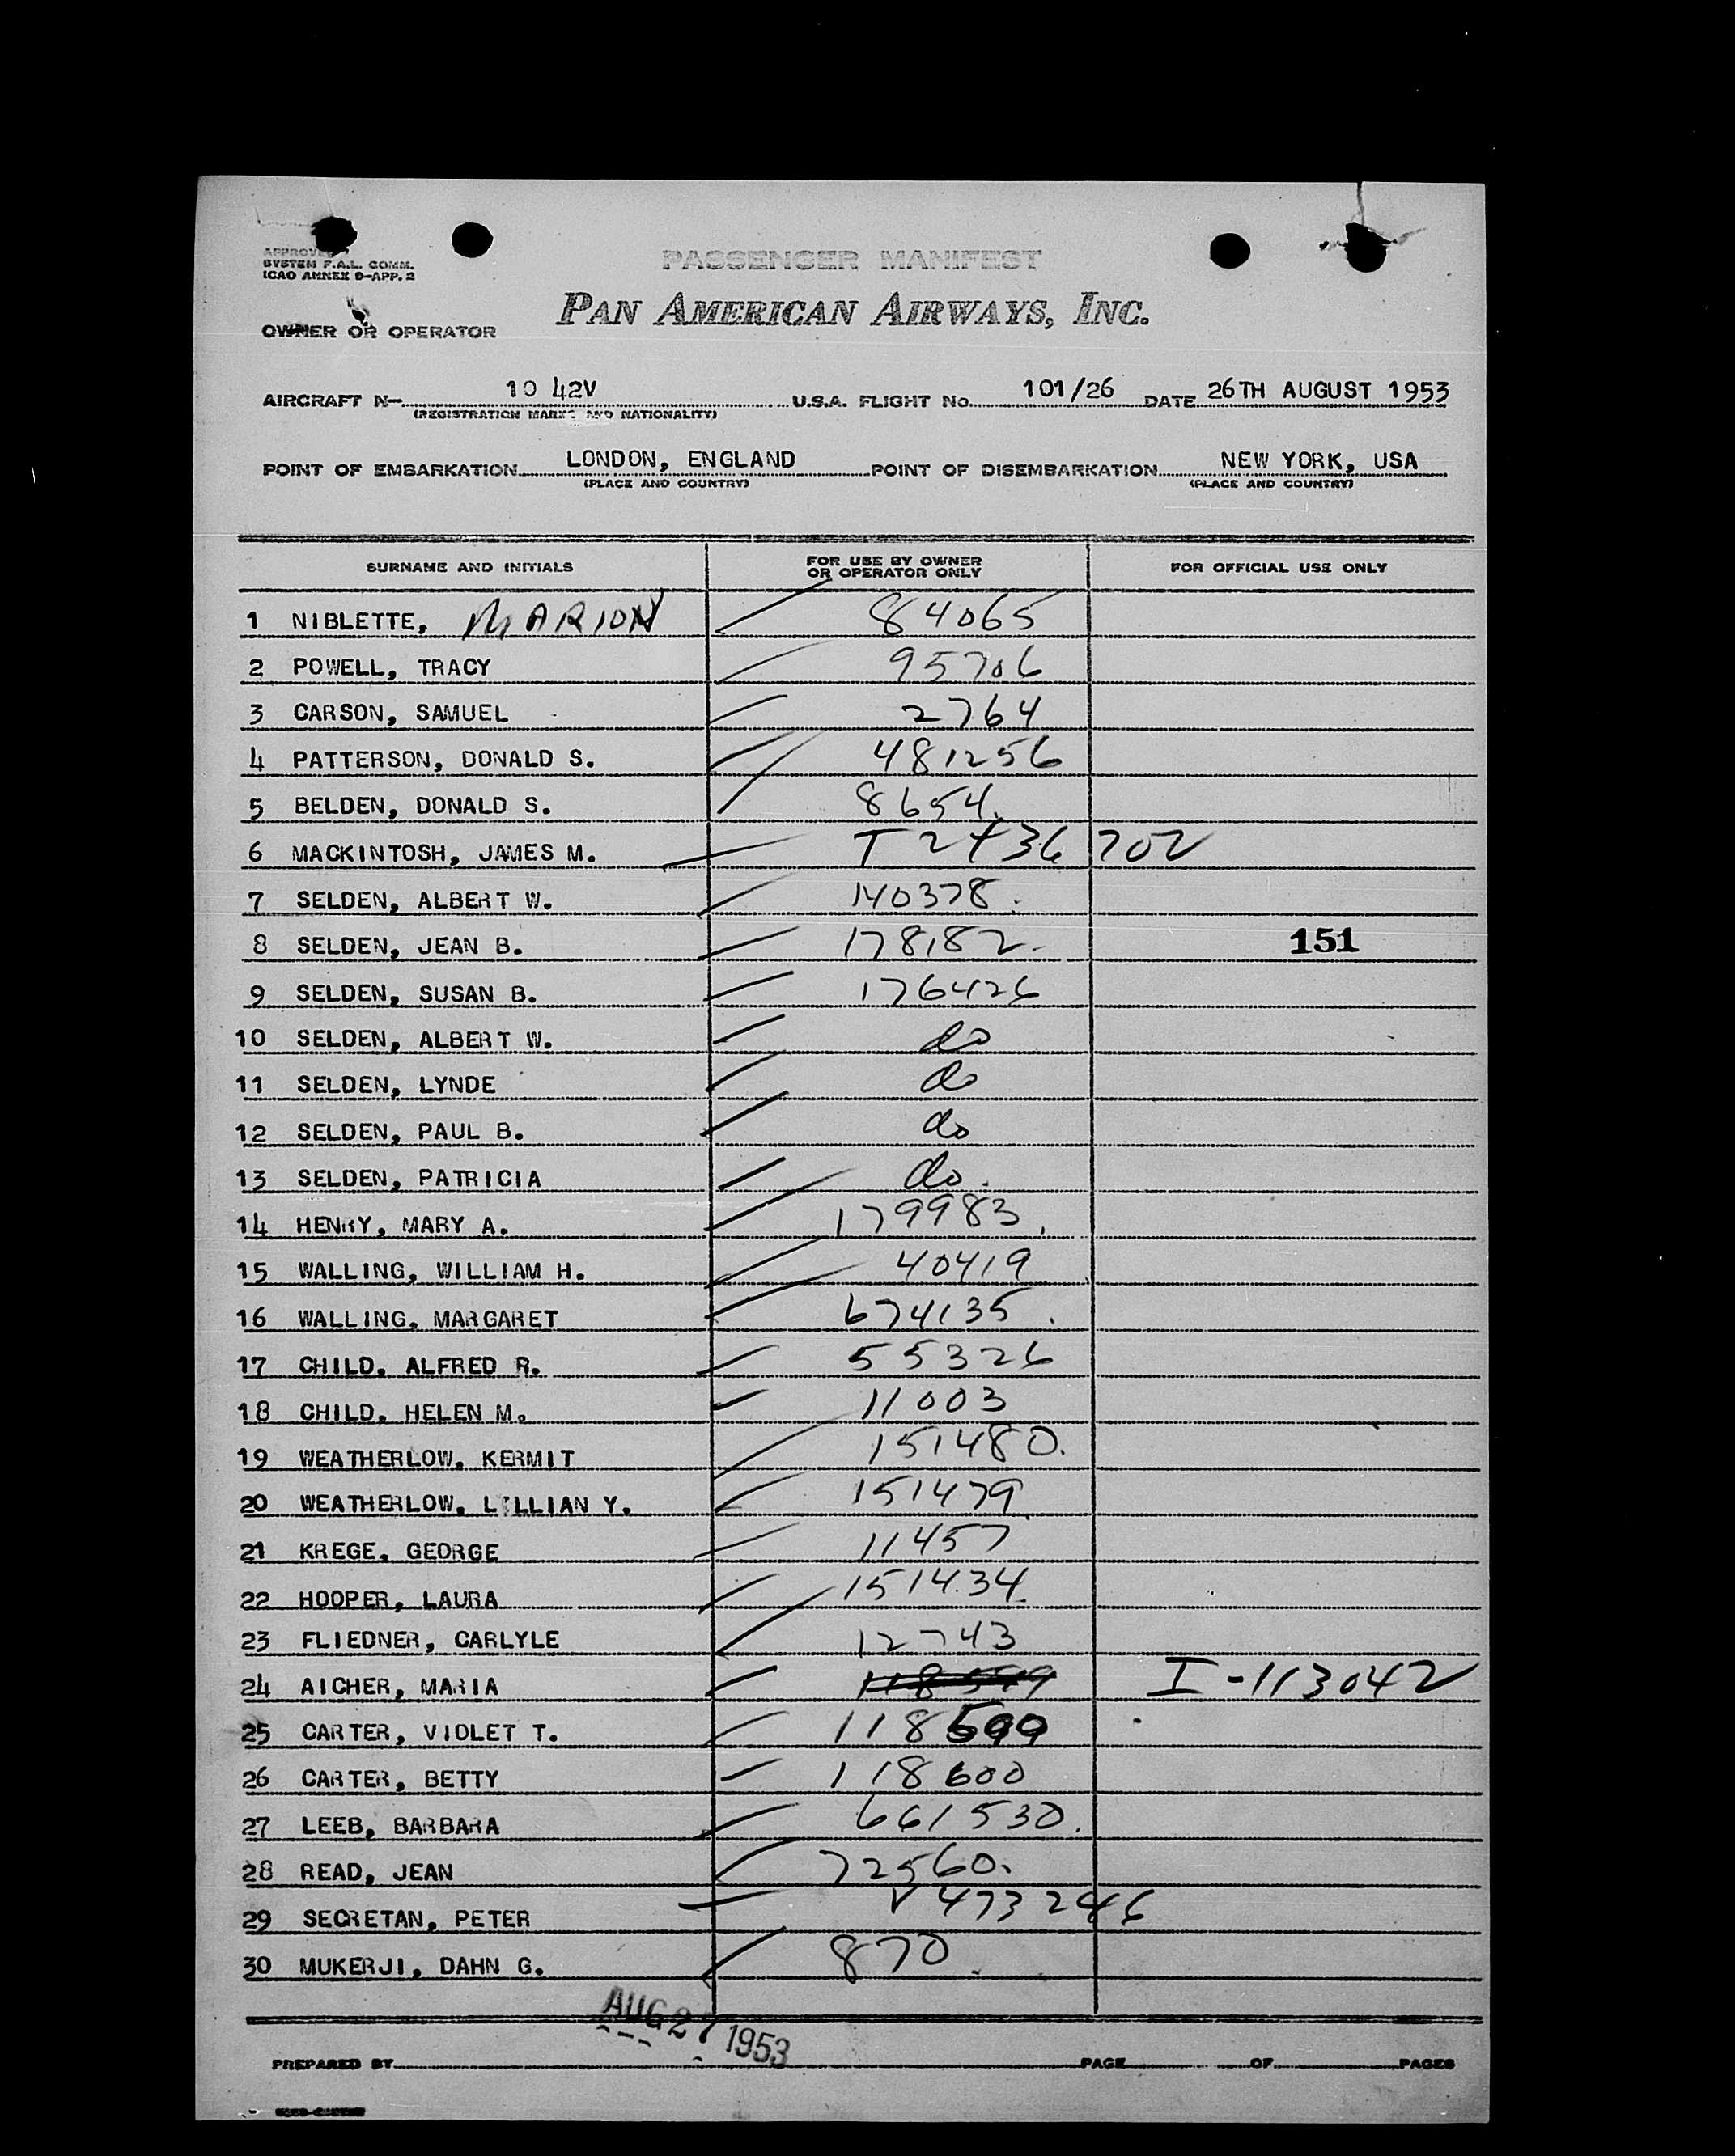 APPROVED
SYSTEM F.A.L. COMM.
ICAO ANNEX 9-APP. 2
PASSENGER MANIFEST
PAN AMERICAN AIRWAYS, INC.
OWNER OR OPERATOR
AIRCRAFT N- 10 42V U.S.A. FLIGHT No. 101/26 DATE 26TH AUGUST 1953
(REGISTRATION MARKS AND NATIONALITY)
POINT OF EMBARKATION LONDON, ENGLAND POINT OF DISEMBARKATION NEW YORK, USA
(PLACE AND COUNTRY) (PLACE AND COUNTRY)
SURNAME AND INITIALS FOR USE BY OWNER OR OPERATOR ONLY FOR OFFICIAL USE ONLY
1 NIBLETTE, MARION 84065
2 POWELL, TRACY 95706
3 CARSON, SAMUEL 2764
4 PATTERSON, DONALD S. 481256
5 BELDEN, DONALD S. 8654.
6 MACKINTOSH, JAMES M.
7 SELDEN, ALBERT W. 140378.
8 SELDEN, JEAN B. 178182. 151
9 SELDEN, SUSAN B. 176426
10 SELDEN, ALBERT W. do
11 SELDEN, LYNDE do
12 SELDEN, PAUL B. do
13 SELDEN, PATRICIA do.
14 HENRY, MARY A. 179983.
15 WALLING, WILLIAM H. 40419
16 WALLING. MARGARET 674135.
17 CHILD. ALFRED R. 55326
18 CHILD. HELEN M. 11003
19 WEATHERLOW. KERMIT 151480.
20 WEATHERLOW. LILLIAN Y. 151479
21 KREGE. GEORGE 11457
22 HOOPER, LAURA 151434
23 FLIEDNER, CARLYLE 12743
24 AICHER, MARIA I-113042
25 CARTER, VIOLET T. 118599
26 CARTER, BETTY 118600
27 LEEB, BARBARA 661530.
28 READ, JEAN 72560.
29 SECRETAN, PETER 473246
30 MUKERJI, DAHN G. 870.
AUG 27 1953
PREPARED BY PAGE OF PAGES